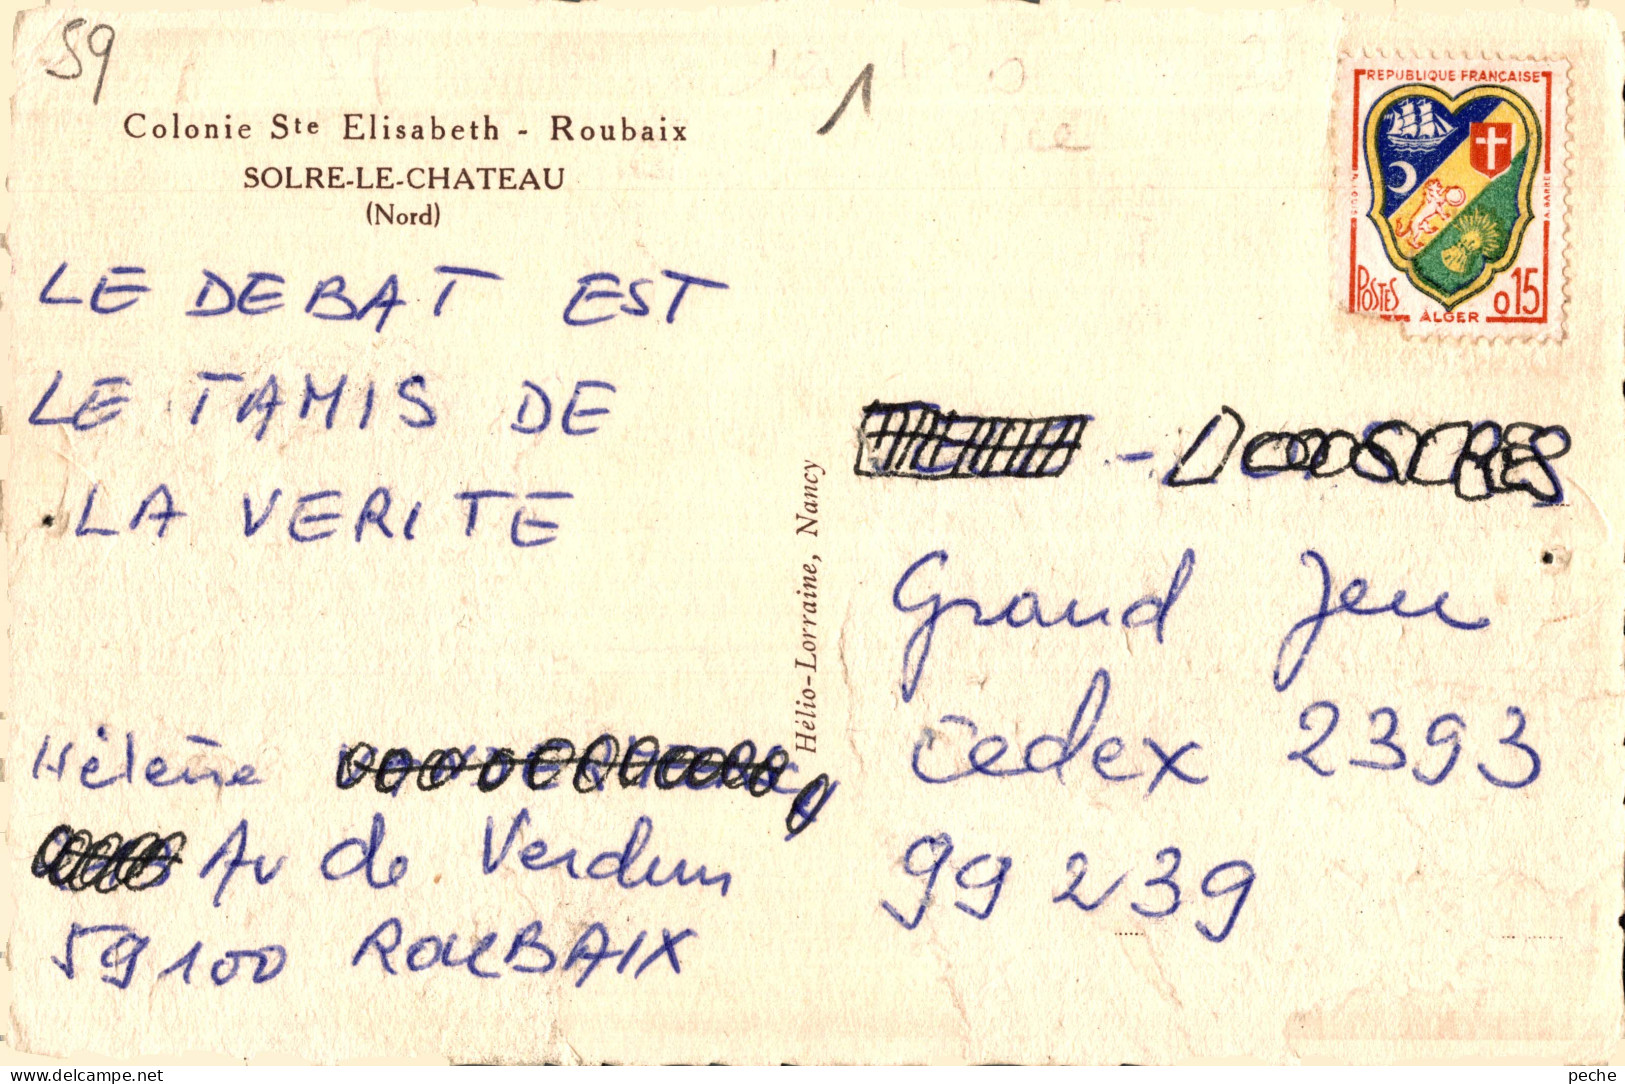 59
Colonie Ste Elisabeth - Roubaix
SOLRE-LE-CHATEAU
(Nord)
1
REPUBLIQUE FRANCAISE
POSTES
0,15
ALGER
LE DEBAT EST
LE TAMIS DE
LA VERITE
Hélio-Lorraine, Nancy
Grand Jeu
Cedex 2393
99239
Hélène
Av de Verdun
59100 ROUBAIX
delcampe.net
peche